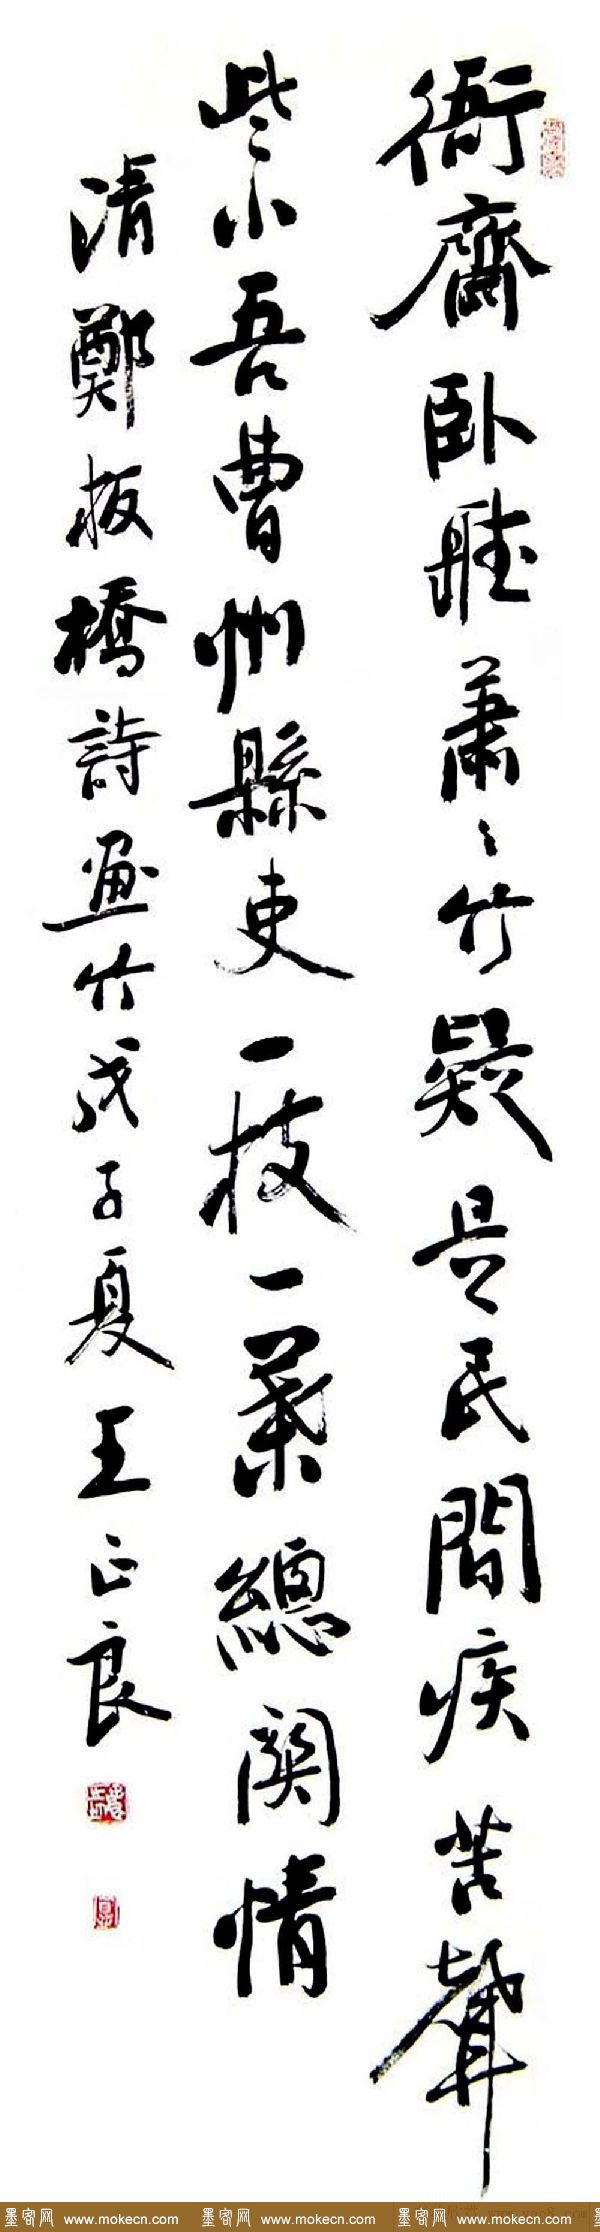 衙齋卧聽蕭〻竹疑是民間疾苦聲
些小吾曹州縣吏一枝一葉總關情
清鄭板橋詩畫竹戊子夏王正良
墨客网 www.mokecn.com 墨客网 www.mokecn.com 墨客网 www.mokecn.com 墨客网 www.mokecn.com